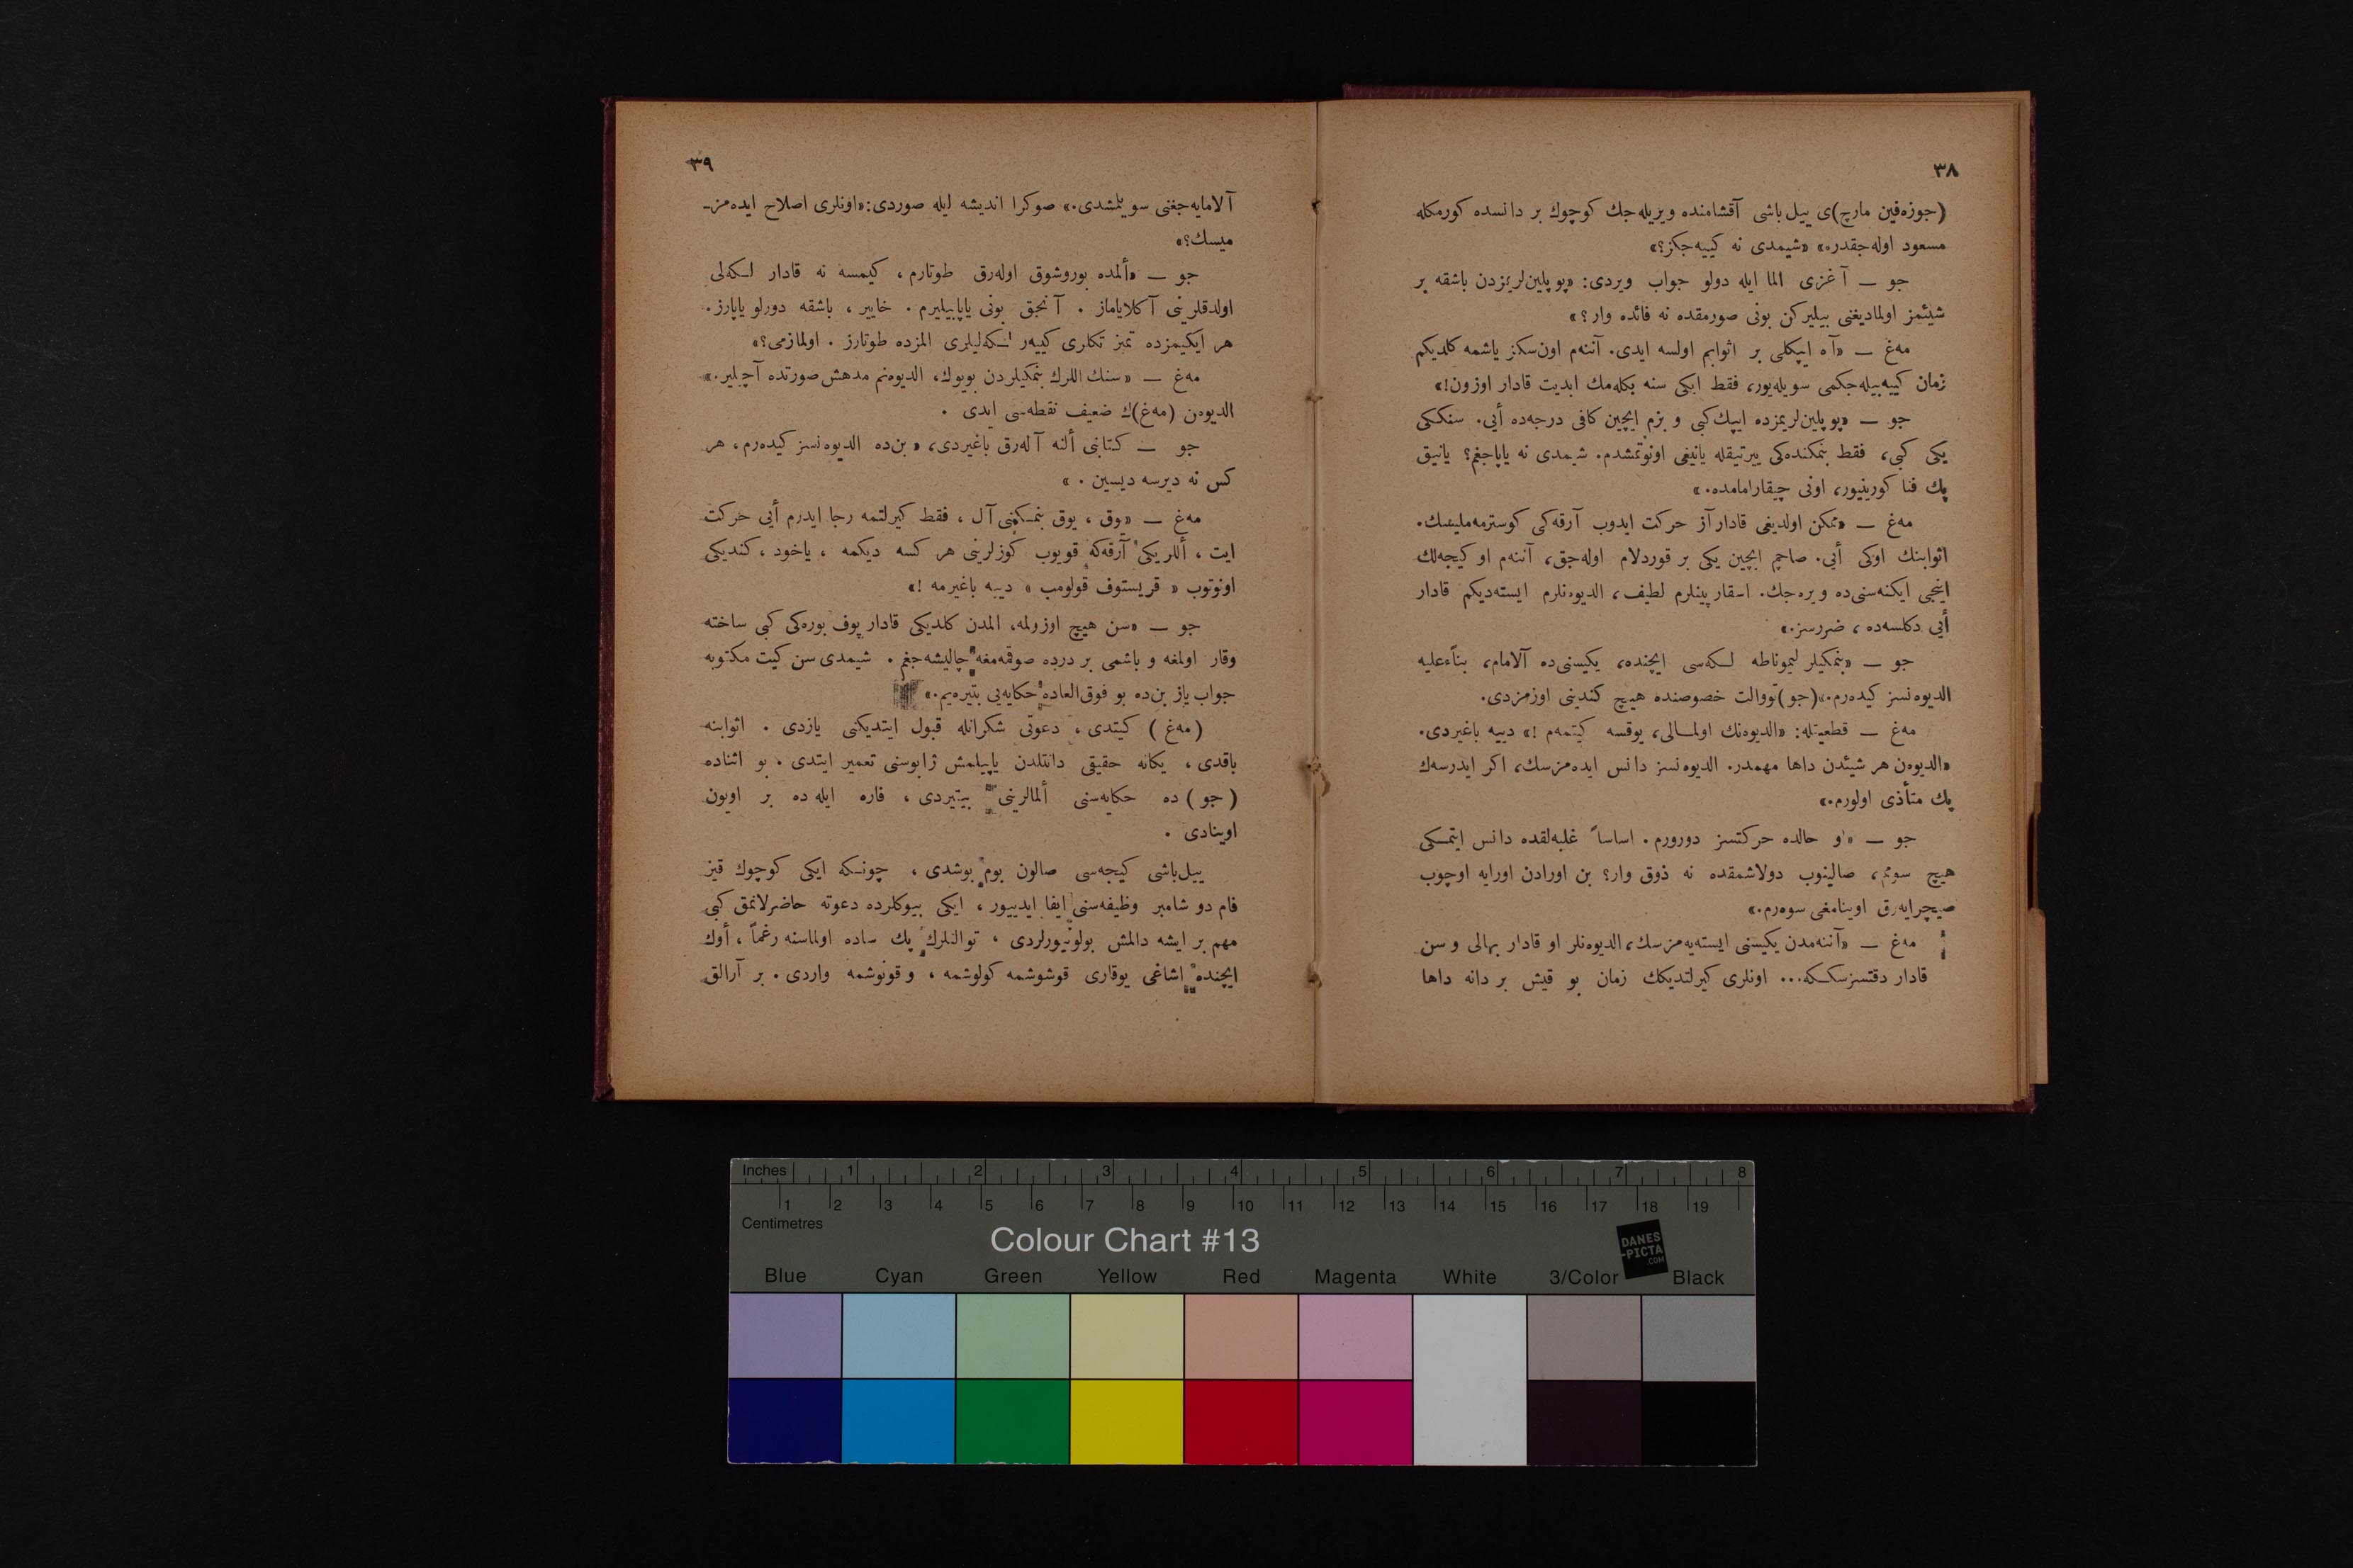 ٣٨
(جوزه‌فین مارچ)ی ییل باشی آقشامنده ویریله‌جك كوچوك بر دانسده كورمكله
مسعود اوله‌جقدر.» «شیمدی نه كییه‌جكز؟»
جو — آغزی الما ایله دولو جواب ویردی: «پوپلین‌لریمزدن باشقه بر
شیئمز اولمادیغنی بیلیركن بونی صورمقده نه فائده وار؟»
مه‌غ — «آه ایپكلی بر اثوابم اولسه ایدی. آننه‌م اون‌سكز یاشمه كلدیكم
زمان كییه‌بیله‌جكمی سویله‌یور، فقط ایكی سنه بكله‌مك ابدیت قادار اوزون!»
جو — «پوپلین‌لریمزده ایپك كبی و بزم ایچین كافی درجه‌ده أیی. سنككی
یكی كبی، فقط بنمكنده‌كی ییرتیقله یانیغی اونوتمشدم. شیمدی نه یاپاجغم؟ یانیق
پك فنا كورینیور، اونی چیقارامامده.»
مه‌غ — «ممكن اولدیغی قادار آز حركت ایدوب آرقه‌كی كوسترمه‌ملیسك.
اثوابنك اوكی أیی. صاچم ایچین یكی بر قوردلام اوله‌جق، آننه‌م او كیجه‌لك
اینجی ایكنه‌سنی‌ده ویره‌جك. اسقارپینلرم لطیف، الدیوه‌نلرم ایسته‌دیكم قادار
أیی دكلسه‌ده ، ضررسز.»
جو — «بنمكیلر لیموناطه لكه‌سی ایچنده، یكیسنی‌ده آلامام، بناءً‌علیه
الدیوه‌نسز كیده‌رم.»(جو)تووالت خصوصنده هیچ كندینی اوزمزدی.
مه‌غ — قطعیتله: «الدیوه‌نك اولمـالی، یوقسه كیتمه‌م !» دییه باغیردی.
«الدیوه‌ن هر شیئدن داها مهمدر. الدیوه‌نسز دانس ایده‌مزسك، اكر ایدرسه‌ك
پك متأذی اولورم.»
جو — «او حالده حركتسز دورورم. اساساً غلبه‌لقده دانس ایتمـكی
هیچ سومم، صالینوب دولاشمقده نه ذوق وار؟ بن اورادن اورایه اوچوب
صیچرایه‌رق اوینامغی سوه‌رم.»
مه‌غ — «آننه‌مدن یكیسنی ایسته‌یه‌مزسك، الدیوه‌نلر او قادار بهالی و سن
قادار دقتسزسكـكه... اونلری كیرلتدیكك زمان بو قیش بر دانه داها
٣٩
آلامایه‌جغنی سویلمشدی.» صوكرا اندیشه ایله صوردی:«اونلری اصلاح ایده‌مز-
میسك؟»
جو — «ألمده بوروشوق اوله‌رق طوتارم ، كیمسه نه قادار لـكه‌لی
اولدقلرینی آكلایاماز . آنجق بونی یاپابیلیرم . خاییر ، باشقه دورلو یاپارز.
هر ایكیمزده تمیز تكلری كییه‌ر لـكه‌لیلری المزده طوتارز . اولمازمی؟»
مه‌غ — «سنك اللرك بنمكیلردن بویوك، الدیوه‌نم مدهش صورتده آچیلیر.»
الدیوه‌ن (مه‌غ)ك ضعیف نقطه‌سی ایدی .
جو — كتابنی ألنه آله‌رق باغیردی، «بن‌ده الدیوه‌نسز كیده‌رم، هر
كس نه دیرسه دیسین . »
مه‌غ — «یوق ، یوق بنمـكنی آل ، فقط كیرلتمه رجا ایدرم أیی حركت
ایت ، أللریكی آرقه‌كه قویوب كوزلرینی هر كسه دیكمه ، یاخود ، كندیكی
اونوتوب « قریستوف قولومب » دییه باغیرمه !»
جو — «سن هیچ اوزولمه، المدن كلدیكی قادار پوف بوره‌كی كبی ساخته
وقار اولمغه و باشمی بر درده صوقمه‌مغه چالیشه‌جغم . شیمدی سن كیت مكتوبه
جواب یاز بن‌ده بو فوق‌العاده حكایه‌یی بتیره‌یم.»
(مه‌غ) كیتدی ، دعوتی شكرانله قبول ایتدیكنی یازدی . اثوابنه
باقدی ، یكانه حقیقی دانتلدن یاپیلمش ژابوسنی تعمیر ایتدی . بو اثناده
(جو) ده حكایه‌سنی ألمالرینی بیتیردی ، فاره ایله ده بر اویون
اوینادی .
ییل‌باشی كیجه‌سی صالون بوم بوشدی ، چونـكه ایكی كوچوك قیز
فام دو شامبر وظیفه‌سنی ایفا ایدییور ، ایكی بیوكلرده دعوته حاضرلانمق كبی
مهم بر ایشه دالمش بولونیورلردی ، توالتلرك پك ساده اولماسنه رغماً ، أوك
ایچنده اشاغی یوقاری قوشوشمه كولوشمه ، و قونوشمه واردی . بر آرالق
Inches 1 2 3 4 5 6 7 8
1 2 3 4 5 6 7 8 9 10 11 12 13 14 15 16 17 18 19
Centimetres
Colour Chart #13
DANES
-PICTA
.COM
Blue Cyan Green Yellow Red Magenta White 3/Color Black